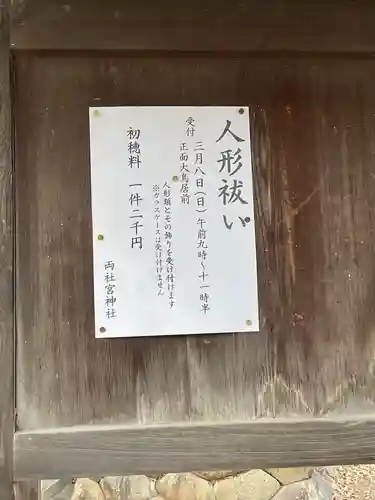 人形祓い
受付 三月八日(日)午前九時~十一時半
正面大鳥居前
人形類とその飾りを受け付けます
※ガラスケースは受け付けません
初穂料 一件二千円
両社宮神社